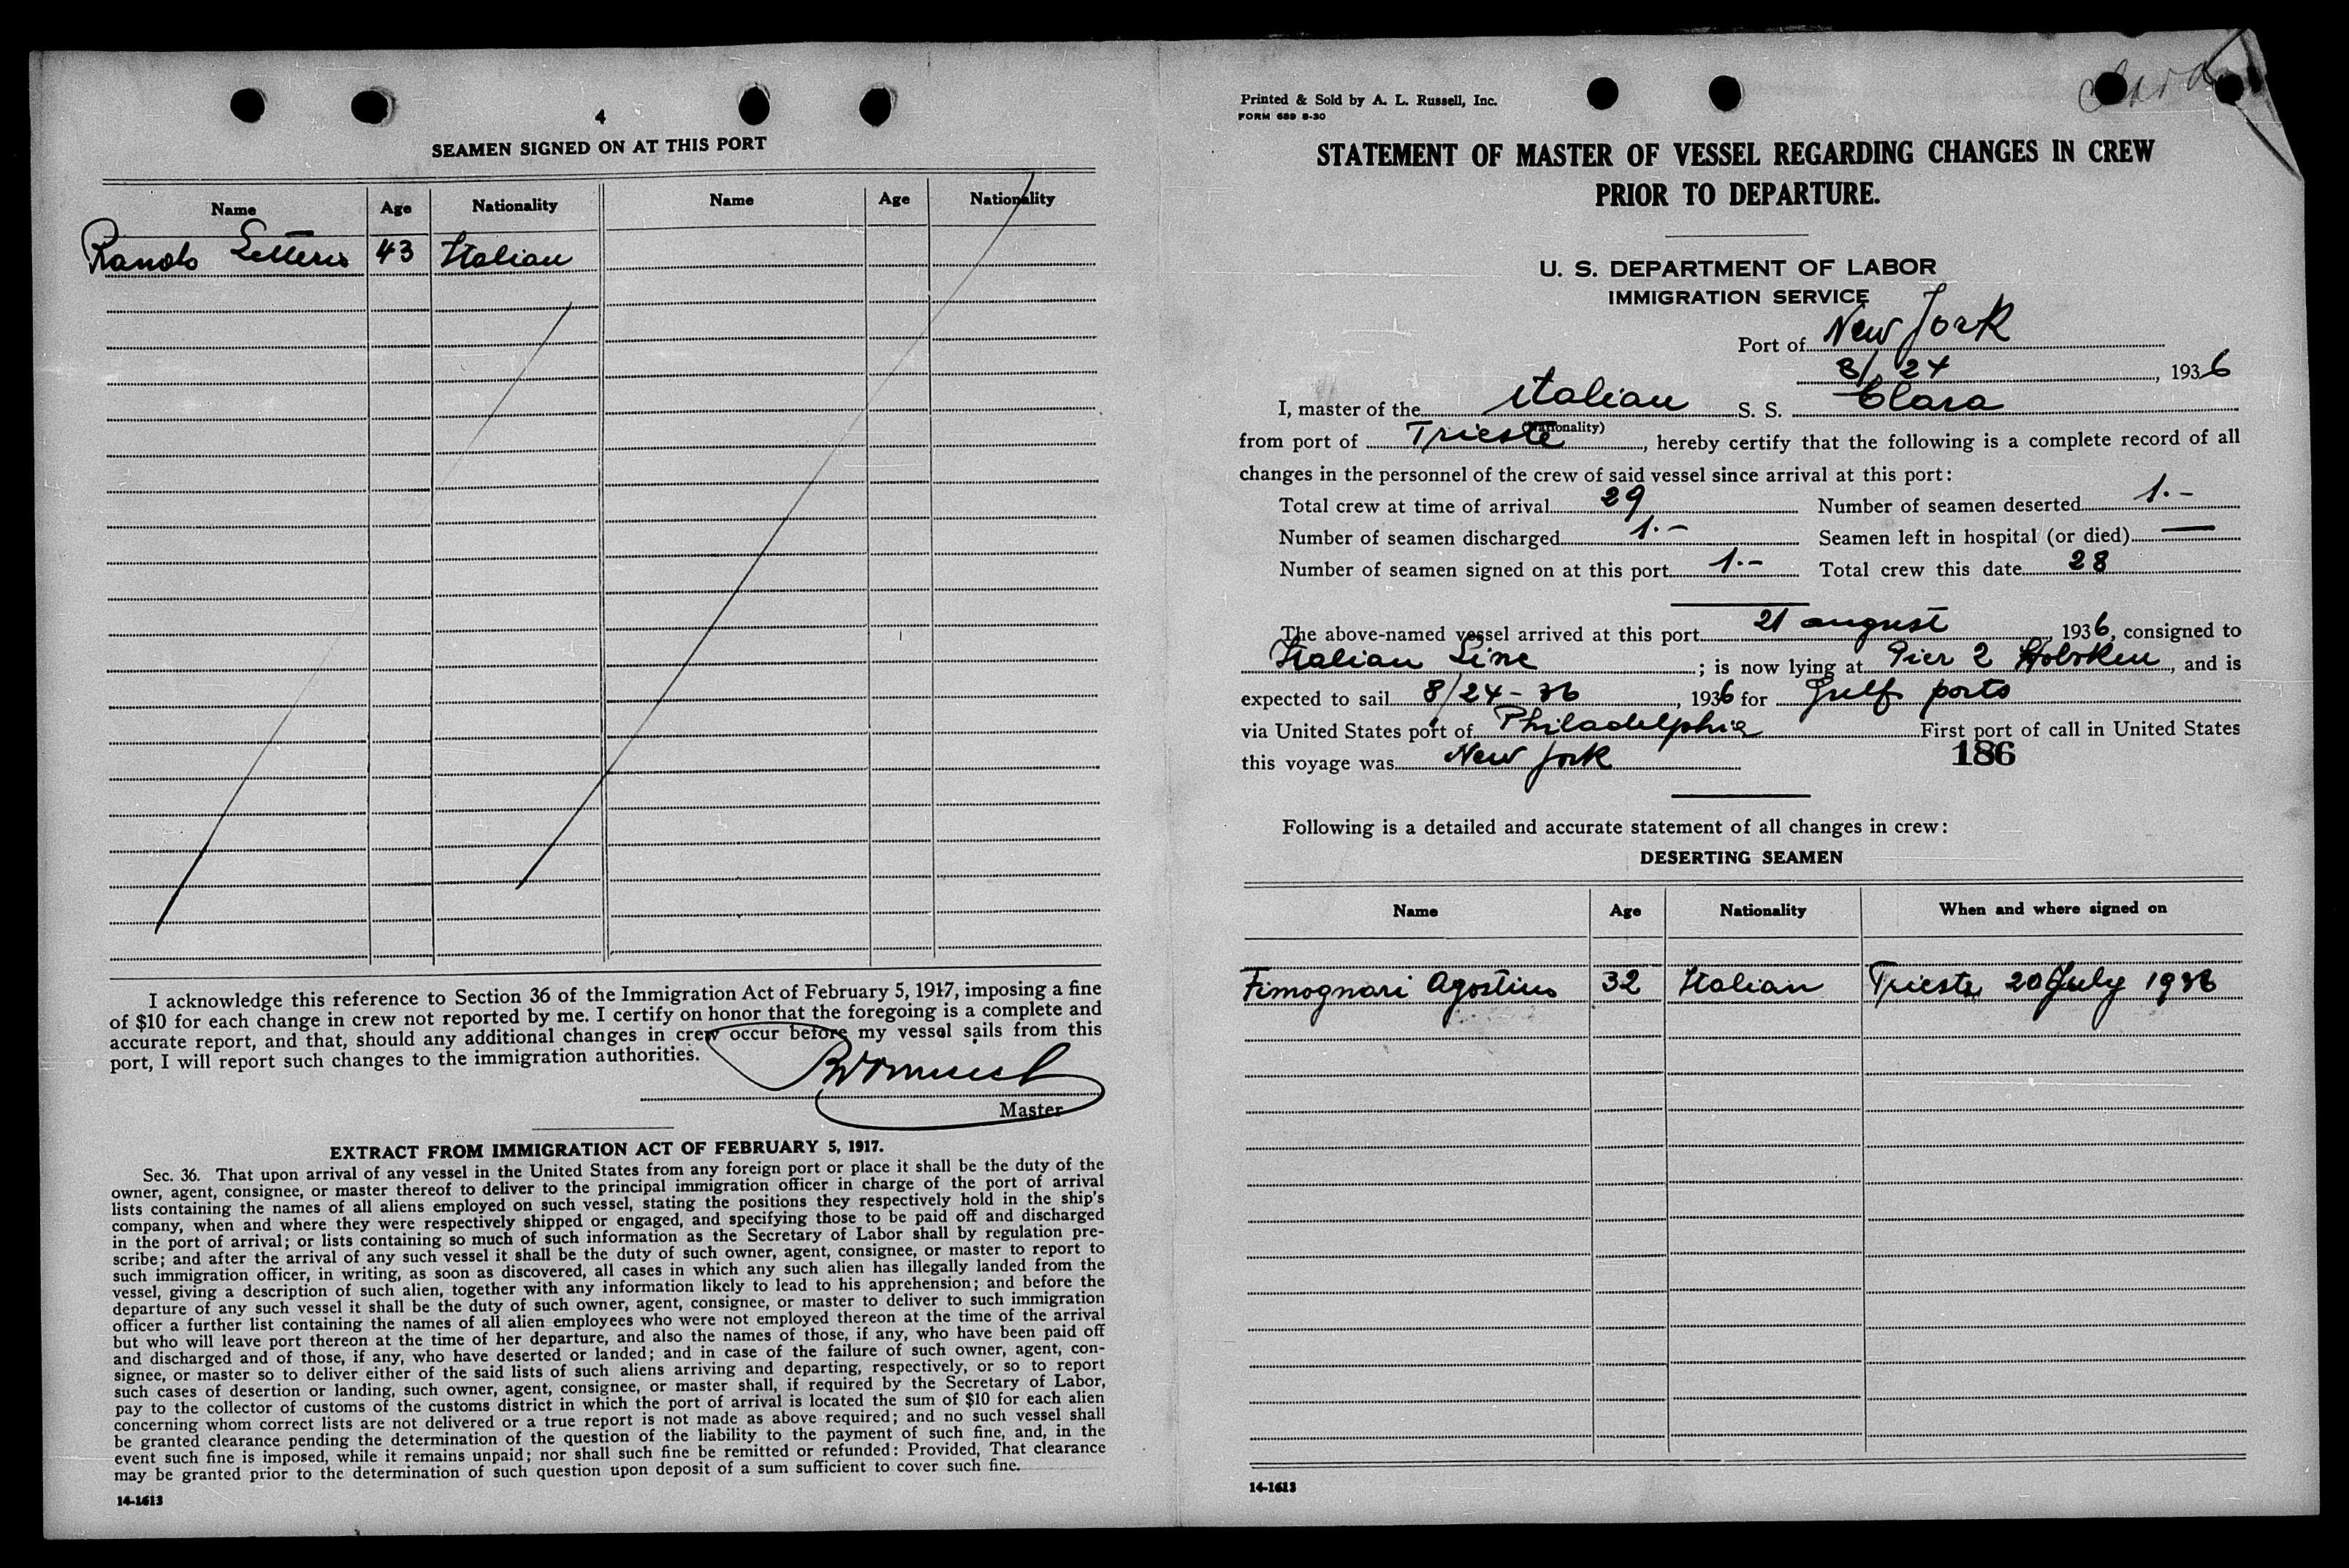 4
SEAMEN SIGNED ON AT THIS PORT
Name Age Nationality Name Age Nationality
Rando Letterio 43 Italian
I acknowledge this reference to Section 36 of the Immigration Act of February 5, 1917, imposing a fine
of $10 for each change in crew not reported by me. I certify on honor that the foregoing is a complete and
accurate report, and that, should any additional changes in crew occur before my vessel sails from this
port, I will report such changes to the immigration authorities.
Master
EXTRACT FROM IMMIGRATION ACT OF FEBRUARY 5, 1917.
Sec. 36. That upon arrival of any vessel in the United States from any foreign port or place it shall be the duty of the
owner, agent, consignee, or master thereof to deliver to the principal immigration officer in charge of the port of arrival
lists containing the names of all aliens employed on such vessel, stating the positions they respectively hold in the ship's
company, when and where they were respectively shipped or engaged, and specifying those to be paid off and discharged
in the port of arrival; or lists containing so much of such information as the Secretary of Labor shall by regulation pre-
scribe; and after the arrival of any such vessel it shall be the duty of such owner, agent, consignee, or master to report to
such immigration officer, in writing, as soon as discovered, all cases in which any such alien has illegally landed from the
vessel, giving a description of such alien, together with any information likely to lead to his apprehension; and before the
departure of any such vessel it shall be the duty of such owner, agent, consignee, or master to deliver to such immigration
officer a further list containing the names of all alien employees who were not employed thereon at the time of the arrival
but who will leave port thereon at the time of her departure, and also the names of those, if any, who have been paid off
and discharged and of those, if any, who have deserted or landed; and in case of the failure of such owner, agent, con-
signee, or master so to deliver either of the said lists of such aliens arriving and departing, respectively, or so to report
such cases of desertion or landing, such owner, agent, consignee, or master shall, if required by the Secretary of Labor,
pay to the collector of customs of the customs district in which the port of arrival is located the sum of $10 for each alien
concerning whom correct lists are not delivered or a true report is not made as above required; and no such vessel shall
be granted clearance pending the determination of the question of the liability to the payment of such fine, and, in the
event such fine is imposed, while it remains unpaid; nor shall such fine be remitted or refunded: Provided, That clearance
may be granted prior to the determination of such question upon deposit of a sum sufficient to cover such fine.
14-1613
Clara
Printed & Sold by A. L. Russell, Inc.
FORM 689 8-30
STATEMENT OF MASTER OF VESSEL REGARDING CHANGES IN CREW
PRIOR TO DEPARTURE.
U. S. DEPARTMENT OF LABOR
IMMIGRATION SERVICE
Port of New York
8/24, 1936
I, master of the italian S. S. Clara
(Nationality)
from port of Trieste, hereby certify that the following is a complete record of all
changes in the personnel of the crew of said vessel since arrival at this port:
Total crew at time of arrival 29 Number of seamen deserted 1.-
Number of seamen discharged 1.- Seamen left in hospital (or died) —
Number of seamen signed on at this port 1.- Total crew this date 28
The above-named vessel arrived at this port 21 august 1936, consigned to
Italian Line; is now lying at Pier 2 Hoboken, and is
expected to sail 8/24-36, 1936 for Gulf ports
via United States port of Philadelphia First port of call in United States
this voyage was New York
186
Following is a detailed and accurate statement of all changes in crew:
DESERTING SEAMEN
Name Age Nationality When and where signed on
Fimognari Agostino 32 Italian Trieste 20 July 1936
14-1613